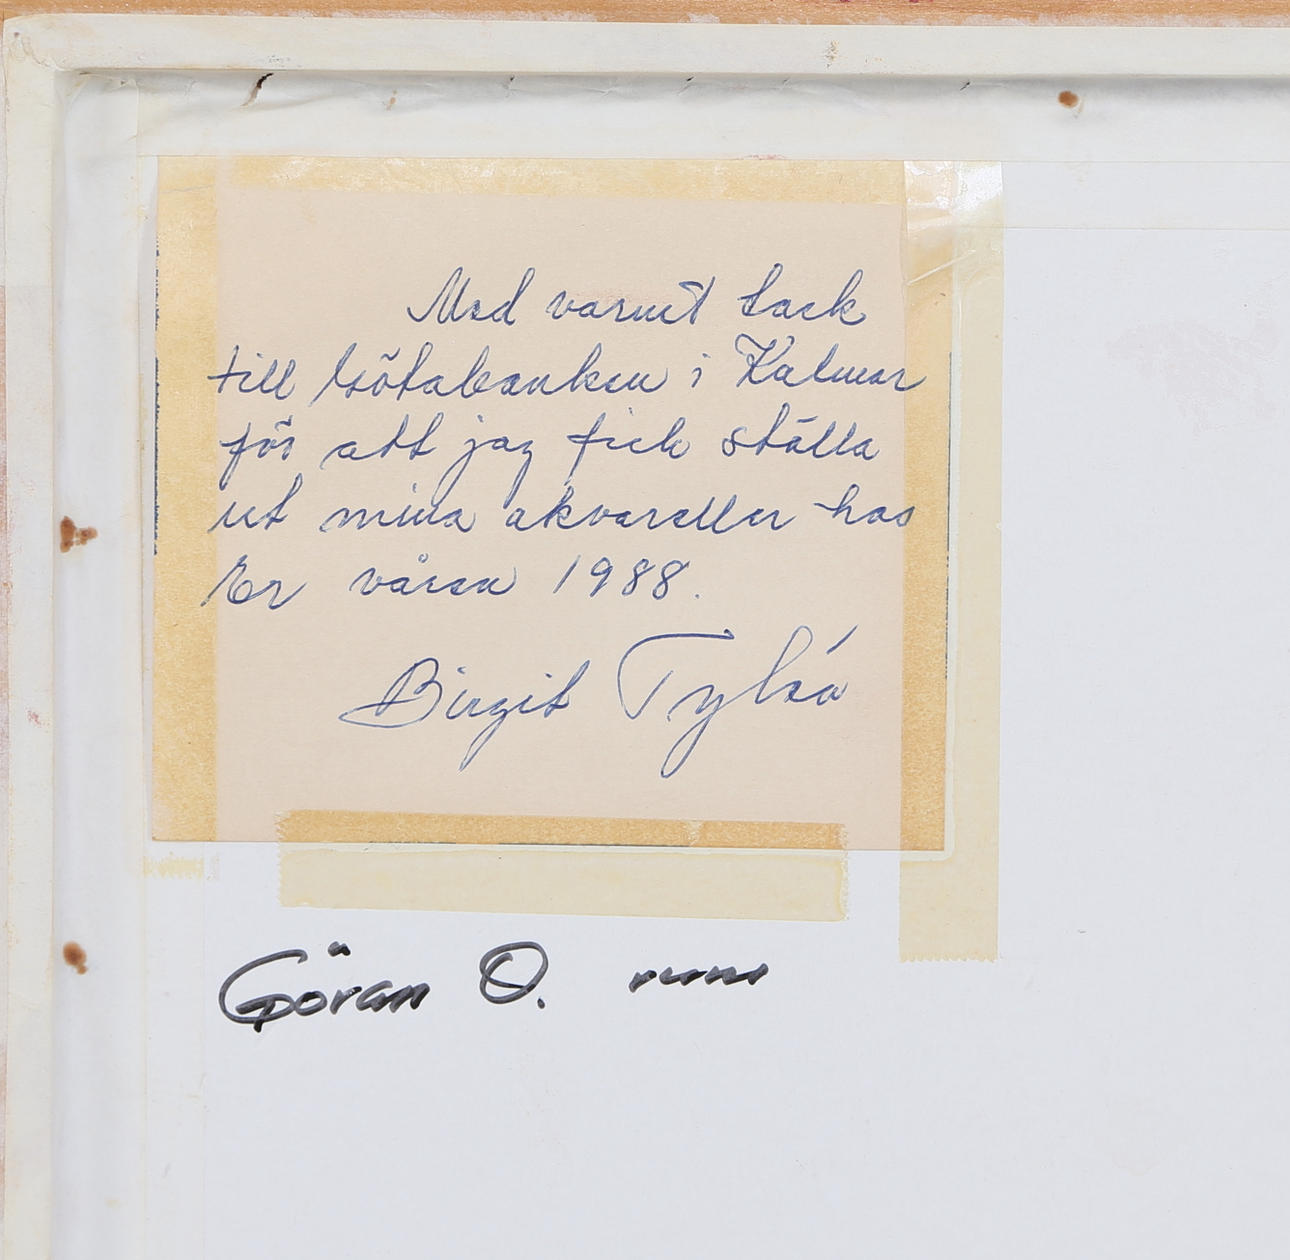 Med varmt tack
till Götabanken i Kalmar
för att jag fick ställa
ut mina akvareller hos
Er våren 1988.
Birgit Tylsó
Göran O. rum